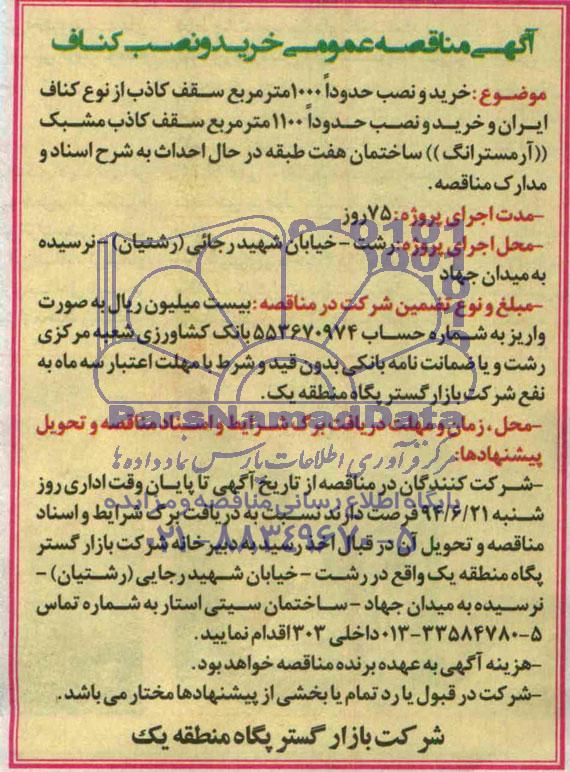 آگهی مناقصه عمومی خرید و نصب کناف
موضوع: خرید و نصب حدوداً ۱۰۰۰ متر مربع سقف کاذب از نوع کناف
ایران و خرید و نصب حدوداً ۱۱۰۰ متر مربع سقف کاذب مشبک
((آرمسترانگ)) ساختمان هفت طبقه در حال احداث به شرح اسناد و
مدارک مناقصه.
-مدت اجرای پروژه: ۷۵ روز
-محل اجرای پروژه: رشت - خیابان شهید رجائی (رشتیان) - نرسیده
به میدان جهاد
-مبلغ و نوع تضمین شرکت در مناقصه: بیست میلیون ریال به صورت
واریز به شماره حساب ۵۵۳۶۷۰۹۷۴ بانک کشاورزی شعبه مرکزی
رشت و یا ضمانت نامه بانکی بدون قید و شرط با مهلت اعتبار سه ماه به
نفع شرکت بازار گستر پگاه منطقه یک.
ParsNamadData
-محل، زمان و مهلت دریافت برگ شرایط و اسناد مناقصه و تحویل
پیشنهادها:
مرکز فرآوری اطلاعات پارس نماد داده ها
-شرکت کنندگان در مناقصه از تاریخ آگهی تا پایان وقت اداری روز
پایگاه اطلاع رسانی مناقصه و مزایده
شنبه ۹۴/۶/۲۱ فرصت دارند نسبت به دریافت برگ شرایط و اسناد
۰۲۱-۸۸۳۴۹۶۷۰-۵
مناقصه و تحویل آن در قبال اخذ رسید به دبیرخانه شرکت بازار گستر
پگاه منطقه یک واقع در رشت - خیابان شهید رجایی (رشتیان) -
نرسیده به میدان جهاد - ساختمان سیتی استار به شماره تماس
۵-۰۱۳-۳۳۵۸۴۷۸۰ داخلی ۳۰۳ اقدام نمایید.
-هزینه آگهی به عهده برنده مناقصه خواهد بود.
-شرکت در قبول یا رد تمام یا بخشی از پیشنهادها مختار می باشد.
شرکت بازار گستر پگاه منطقه یک